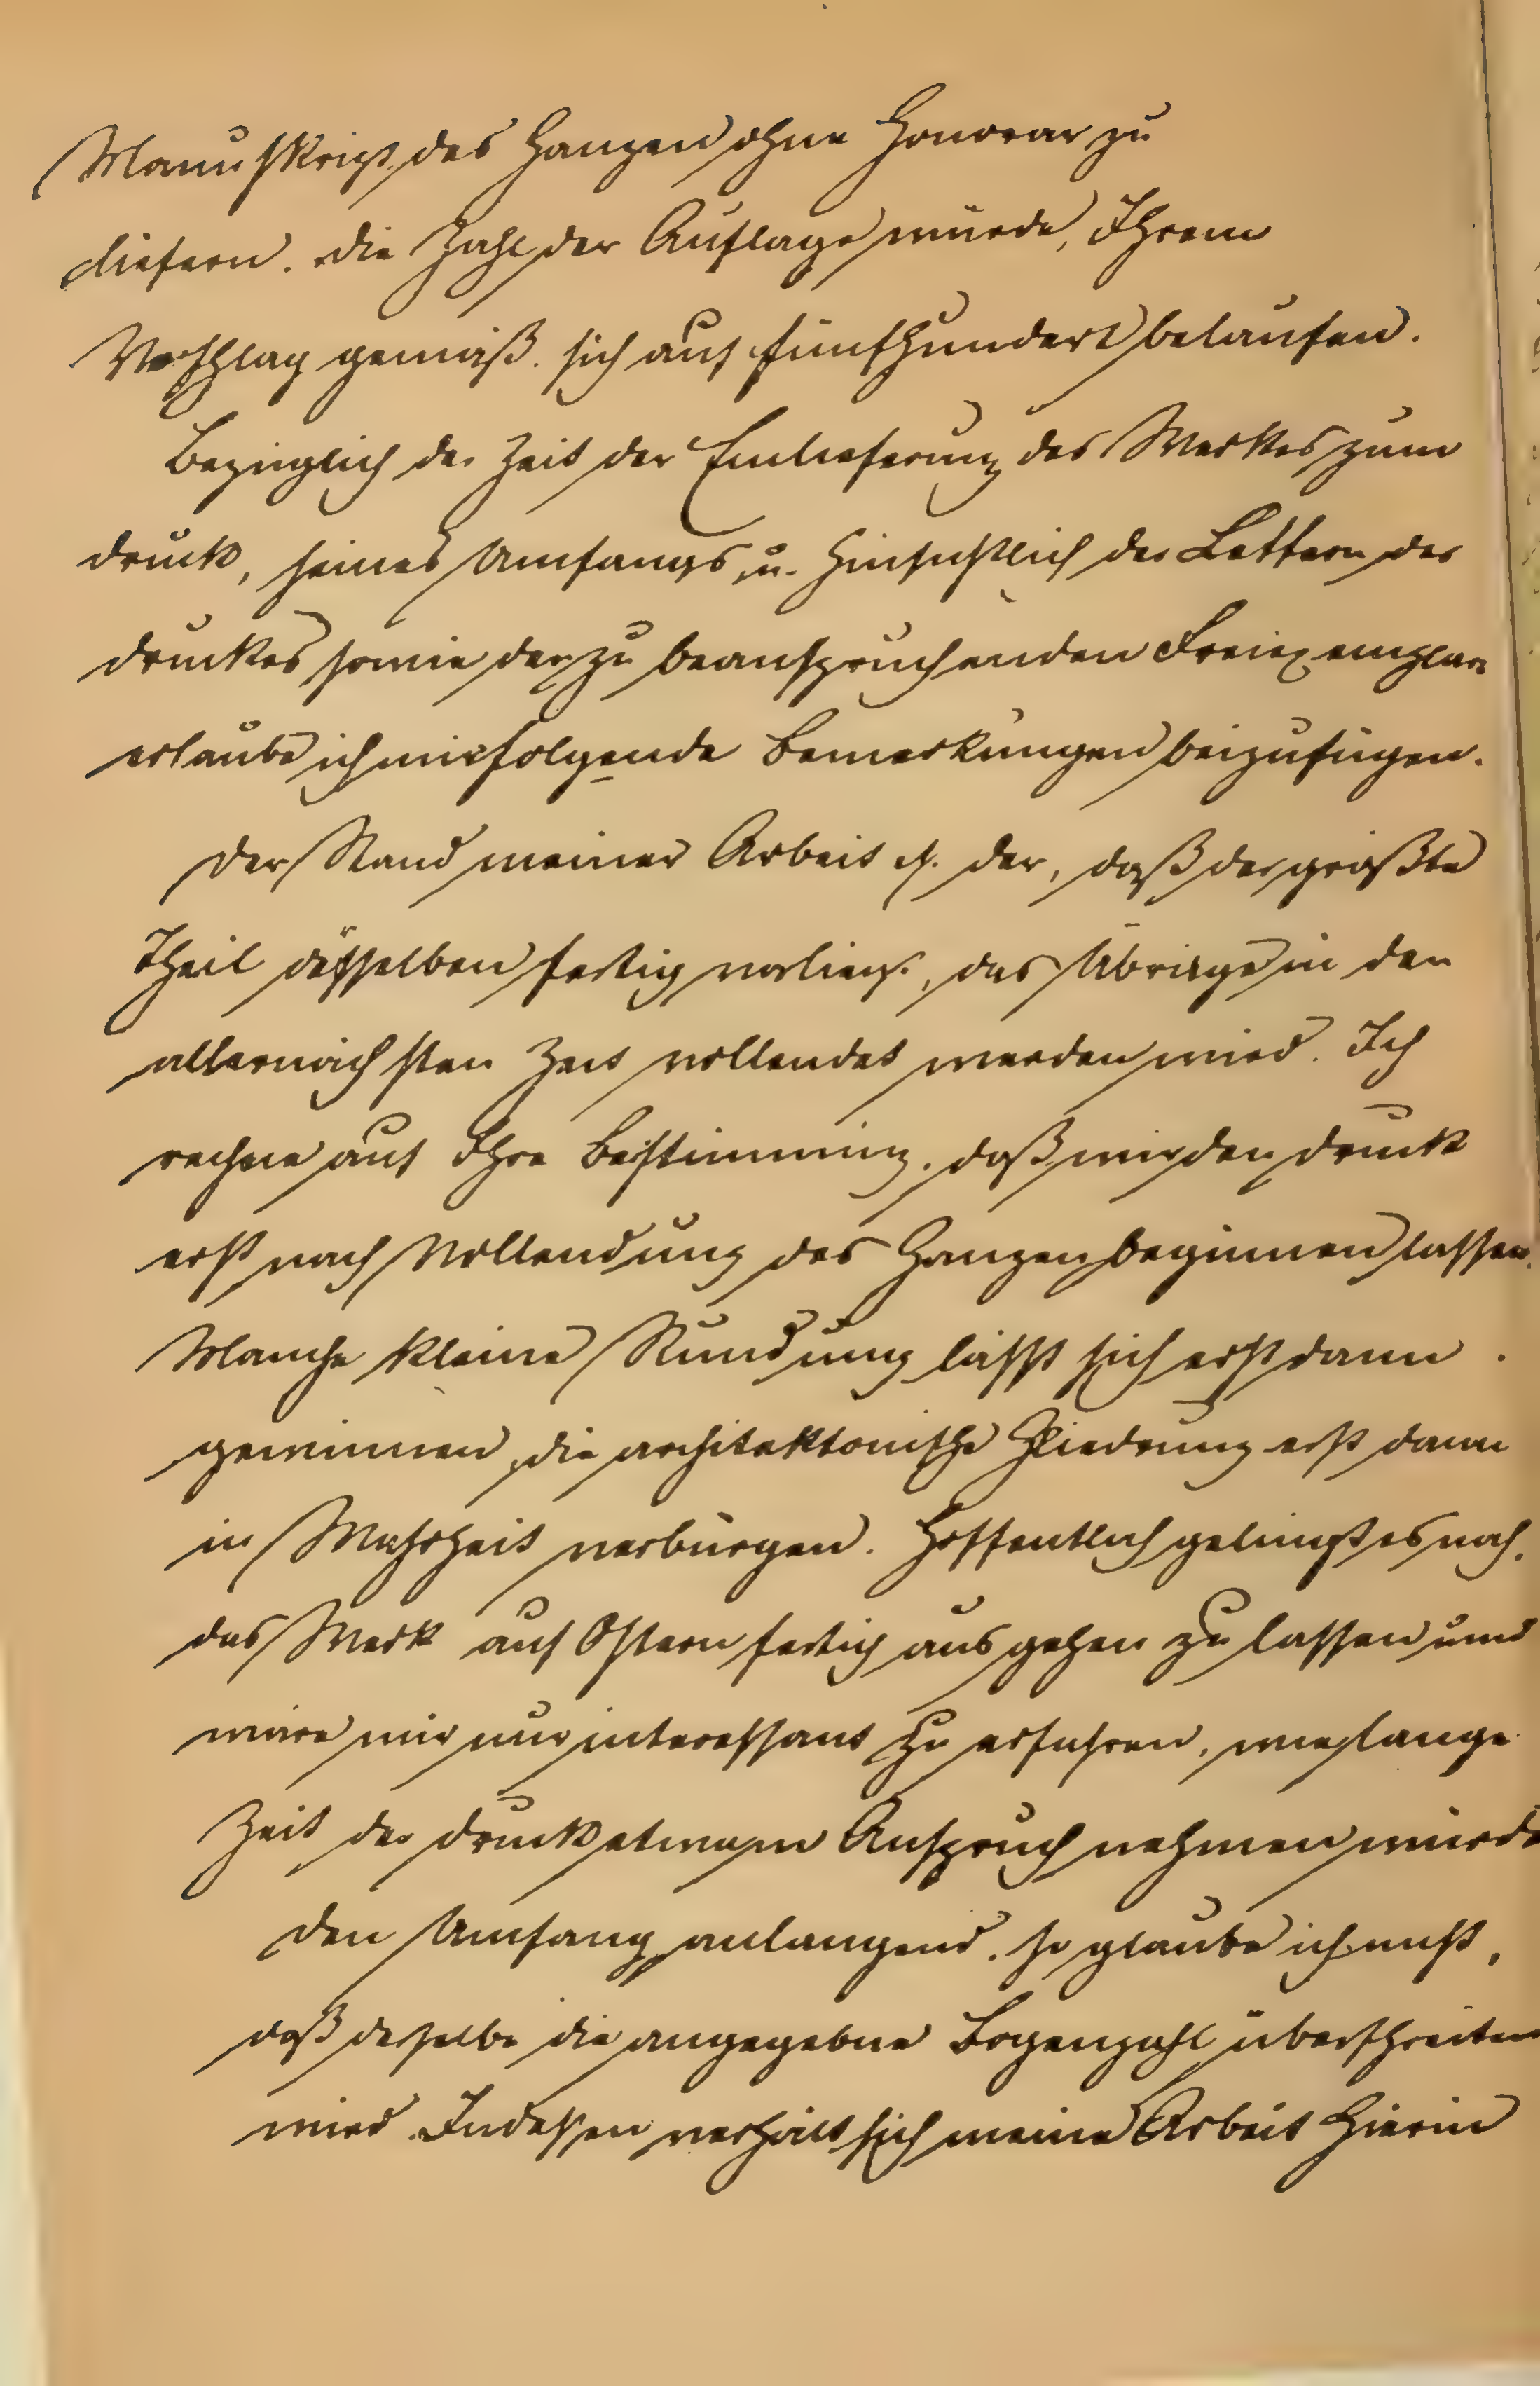 Manuskript des Ganzen ohne Honorar zu
liefern. Die Zahl der Auflage würde, Ihrem
Vorschlag gemäß sich auf fünfhundert belaufen.
Bezüglich der Zeit der Einlieferung des Werkes zum
Druck, seines Umfangs, u. hinsichtlich der Lettern des
Druckes sowie der zu beanspruchenden Freiexemplare
erlaube ich mir folgende Bemerkungen beizufügen.
Der Stand meiner Arbeit ist der, daß der größte
Theil desselben fertig vorliegt, das Übrige in der
allernächsten Zeit vollendet werden wird. Ich
rechne auf Ihre Beistimmung, daß wir den Druck
erst nach Vollendung des Ganzen beginnen lassen.
Manche kleine Rundung läßt sich erst dann
gewinnen, die architektonische Gliedrung erst dann
in Wahrheit verbürgen. Hoffentlich gelingt es noch,
das Werk auf Ostern fertig ausgehen zu lassen und
wäre mir nur interessant zu erfahren, wie lange
Zeit der Druck etwa in Anspruch nehmen würde
Den Umfang anlangend, so glaube ich nicht,
daß derselbe die angegebne Bogenzahl überschreiten
wird. Indessen verhält sich meine Arbeit hierin